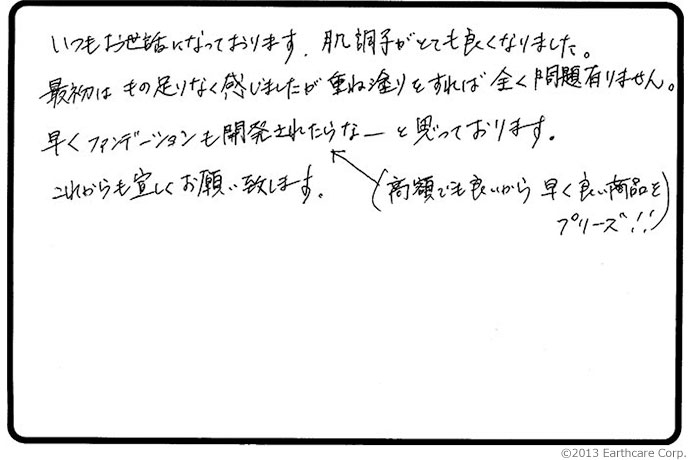 いつもお世話になっております。肌調子がとても良くなりました。
最初はもの足りなく感じましたが重ね塗りをすれば全く問題有りません。
早くファンデーションも開発されたらなーと思っております。
これからも宜しくお願い致します。
(高額でも良いから早く良い商品を
プリーズ!!)
©2013 Earthcare Corp.